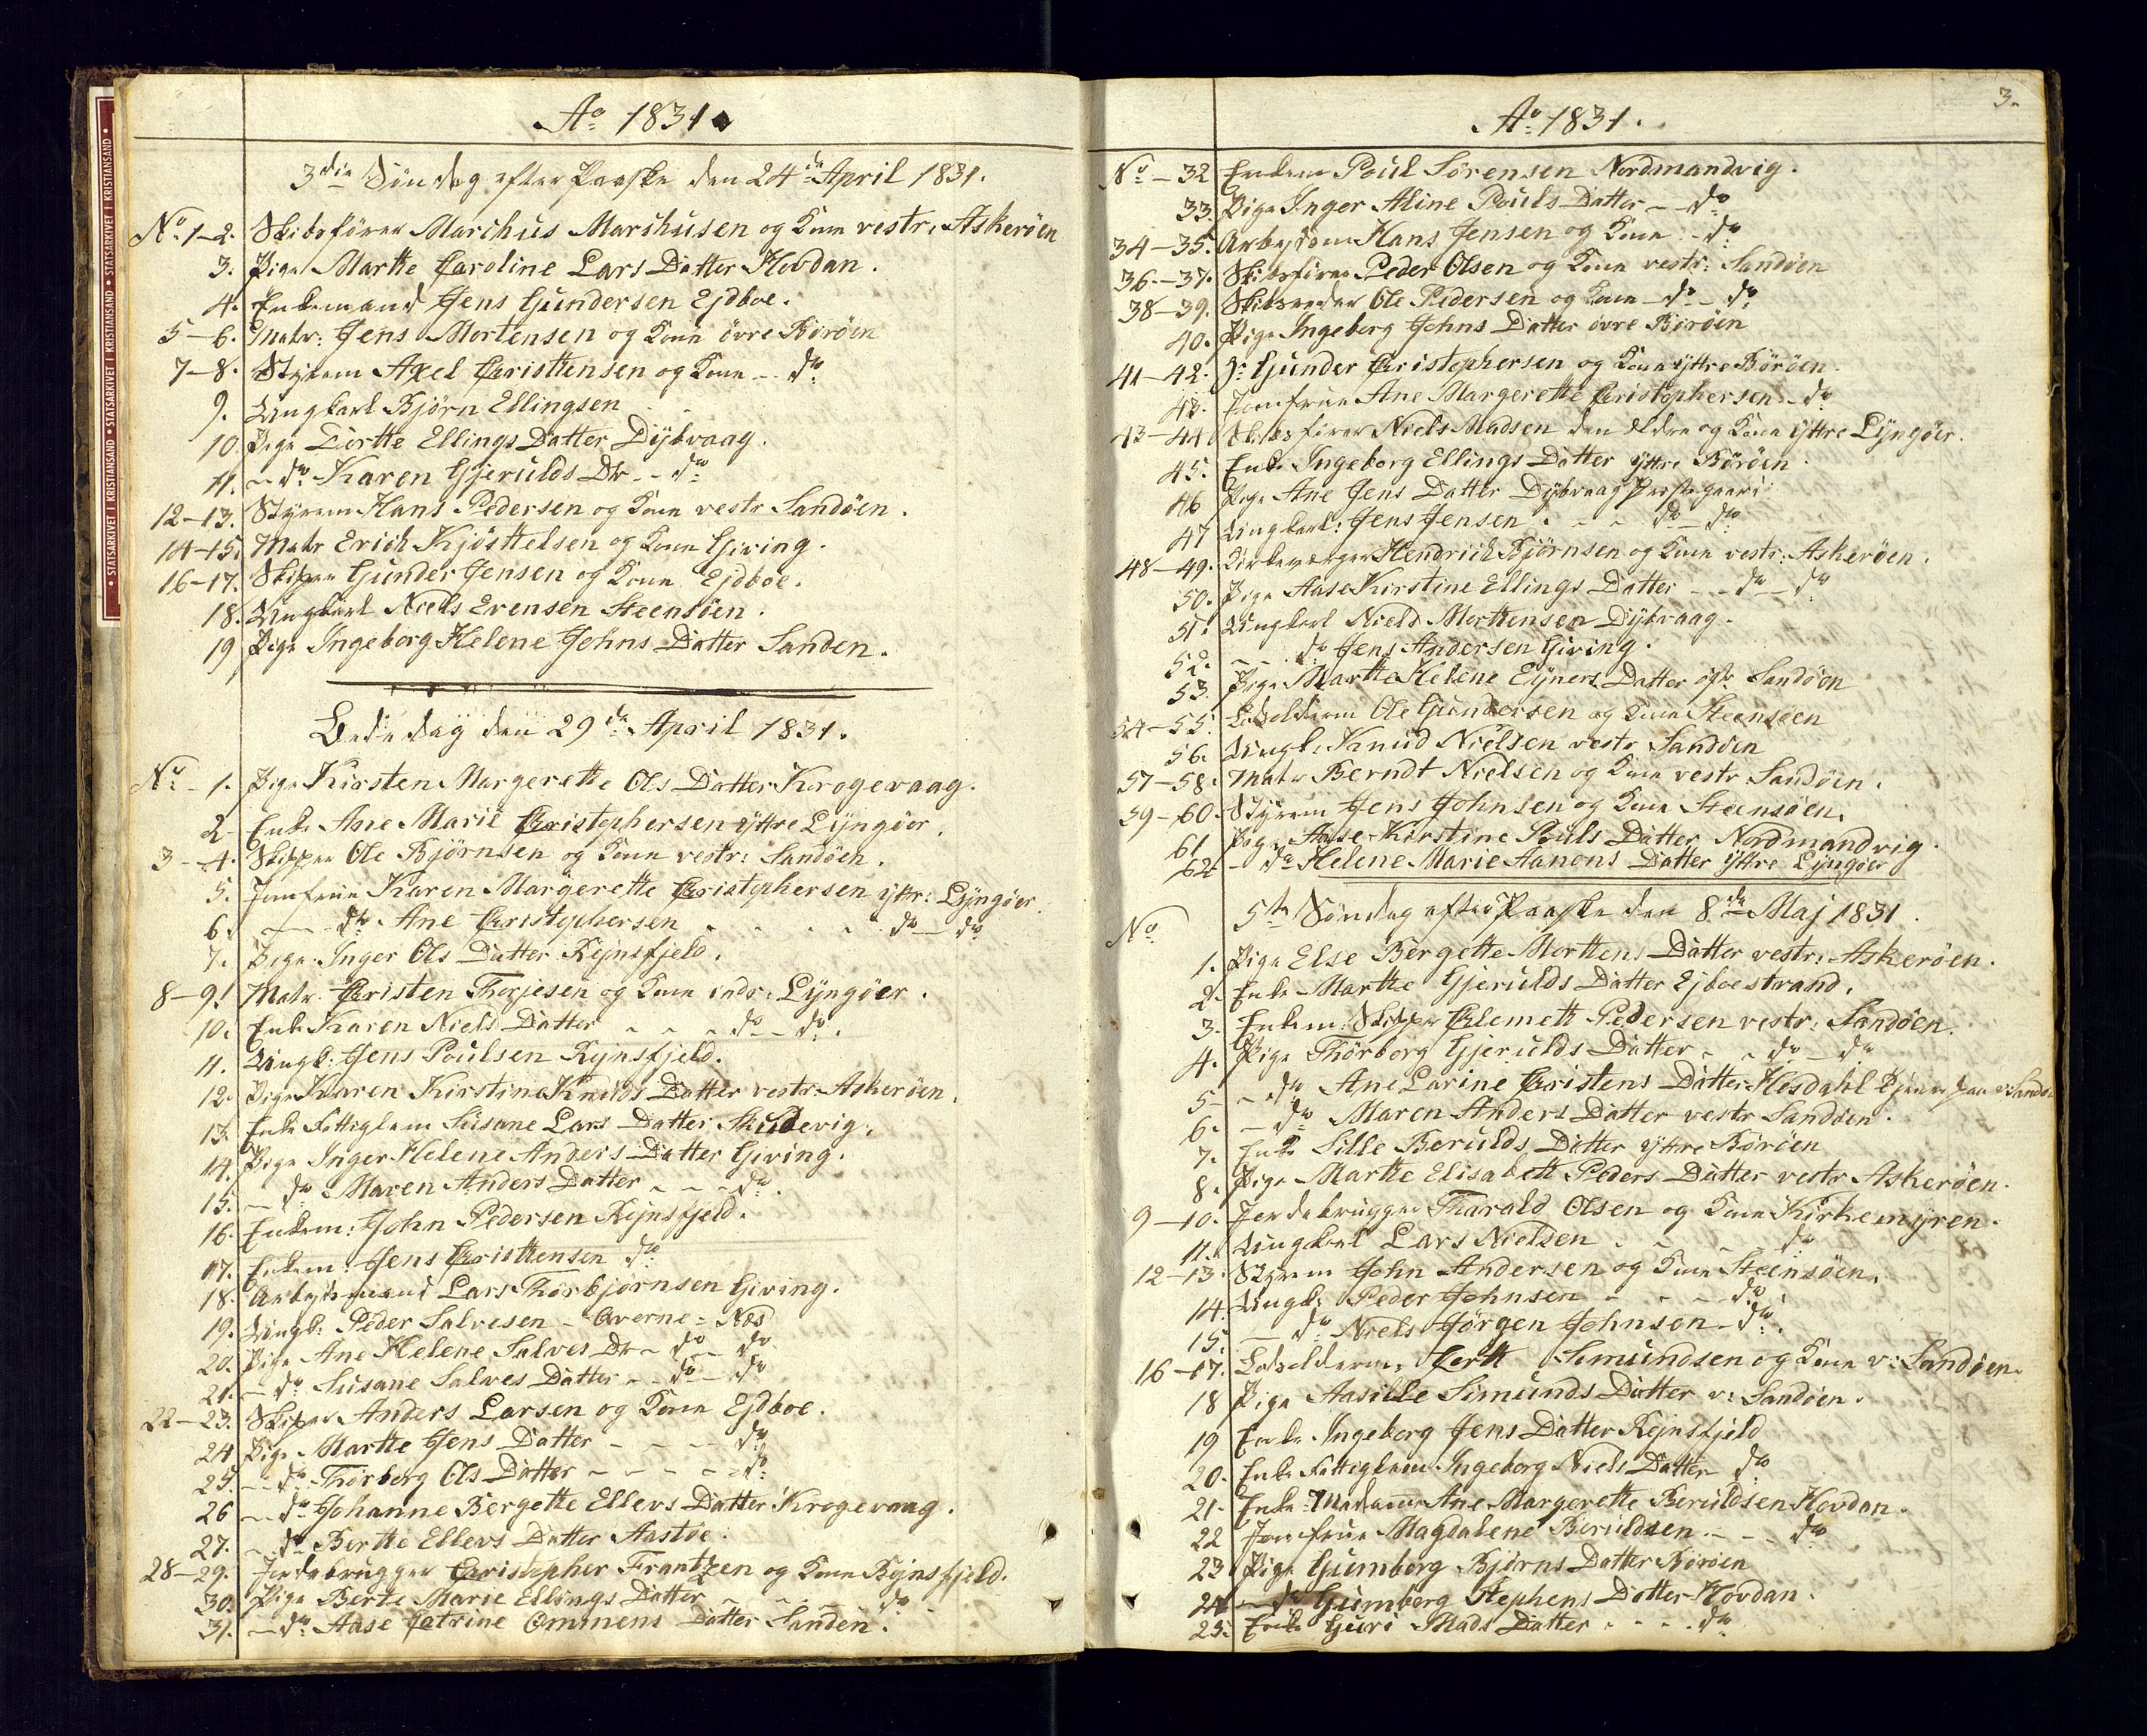 • STATSARKIVET I KRISTIANSAND • STATSARKIVET I KRISTIANSAND • STATSARKIVET I KRISTIANSAND •
Ao 1831.
3die Søndag efter Paaske den 24de April 1831.
No 1-2. Skibsfører Marihus Marihusen og Kone vestr: Askerøen
3. Pige Marthe Caroline Lars Datter Hovdan.
4. Enkemand Jens Gundersen Ejdboe.
5-6. Matr: Jens Mortensen og Kone övre Børøen
7-8. Styrem Axel Christensen og Kone - do
9. Ungkarl Bjørn Ellingsen
10. Pige Dorthe Ellings Datter Dÿbvaag.
11. - do Karen Gjerulds Dtr - do
12-13. Styrem Hans Pedersen og Kone vestr Sandøen.
14-15. Matr Erich Kjöstelsen og Kone Giving.
16-17. Skipper Gunder Jensen og Kone Ejdboe.
18. Ungkarl Niels Evensen Steensöen.
19 Pige Ingeborg Helene Johns Datter Sanden.
Bededag den 29de April 1831.
No - 1. Pige Kirsten Margerethe Ols Datter Krogevaag.
2- Enke Ane Marie Christophersen ÿttre Lÿngöer.
3-4. Skipper Ole Bjørnsen og Kone vestr: Sandøen.
5. Jomfrue Karen Margerethe Christophersen ÿttr: Lÿngöer.
6. - do Ane Christophersen do - do
7. Pige Inger Ols Datter Rejnsfjeld.
8-9. Matr. Christen Therjesen og Kone indr: Lÿngöer.
10. Enke Karen Niels Datter - - do - do.
11. Ungk: Jens Poulsen Rejnsfjeld.
12. Pige Karen Kirstine Knuds Datter vestr: Askerøen.
13. Enke Fattiglem Susane Lars Datter Skudevig.
14. Pige Inger Helene Anders Datter Giving.
15. - do Maren Anders Datter - - do.
16. Enkem: John Pedersen Rejnsfjeld.
17. Enkem: Jens Christensen do
18. Arbejdsmand Lars Thorbjørnsen Giving.
19. Ungk: Peder Salvesen - Qverne-Næs
20. Pige Ane Helene Salves Dtr - do - do
21. - do Susane Salves Datter - do - do
22-23. Skipper Anders Larsen og Kone Ejdboe.
24 Pige Marthe Jens Datter - - - do
25. - do Thorborg Ols Datter - - - - do
26 - do Johanne Bergethe Ellevs Datter Krogevaag.
27. - do Berthe Ellevs Datter Aastøe.
28-29. Jordebrugger Christopher Frantzen og Kone Rejnsfjeld.
30. Pige Berte Marie Ellings Datter - - - do
31. - do Aase Catrine Ommens Datter Sanden.
3.
Ao 1831.
No - 32 Enkem Poul Sörensen Nordmandvig.
33. Pige Inger Aline Pouls Datter - - do
34-35. Arbejdsm Hans Jensen og Kone - do
36.-37. Skibsfører Peder Olsen og Kone vestr: Sandøen
38-39. Skibsreder Ole Pedersen og Kone - do - do
40. Pige Ingeborg Johns Datter övre Børöen
41-42. Gunder Christophersen og Kone ÿttre Børöen.
43. Jomfrue Ane Margerethe Christophersen - do
43-44. Skibsfører Niels Madsen den Eldre og Kone ÿttre Lÿngöer.
45. Enke Ingeborg Ellings Datter ÿttre Børöen
46 Pige Ane Jens Datter Dÿbvaag Præstegaard
47 Ungkarl: Jens Jensen - - - do - do
48-49. Kirkeværger Hendrich Bjørnsen og Kone vestr: Askerøen.
50. Pige Aase Kirstine Ellings Datter - - do - do
51. Ungkarl Nield Morttensen Dÿbvaag.
52. - - do Jens Andersen Giving.
53. Pige Marthe Helene Ejners Datter östr Sandöen
54-55. Lodsolderm Ole Gundersen og Kone Steensöen
56. Ungk: Knud Nielsen vestr Sandøen
57-58. Matr Berndt Nielsen og Kone vestr Sandöen.
59-60 Styrem Jens Johnsen og Kone Steensöen.
61 Pige Aase-Kirstine Pouls Datter Nordmandvig.
62 - do Helene Marie Aanons Datter ÿttre Lÿngöer
5te Søndag efter Paaske den 8de Maj 1831.
No
1. Pige Else Bergethe Morttens Datter vestr: Askerøen.
2. Enke Marthe Gjerulds Datter Ejboestrand.
3. Enkem: Skipper Clemett Pedersen vestr: Sandøen.
4. Pige Thörborg Gjerulds Datter - - do - do
5- - do Ane Larine Christens Datter Hesdahl tjener paa v: Sandø
6. - do Maren Anders Datter vestr Sandöen.
7. Enke Sille Berulds Datter ÿttre Børöen
8. Pige Marthe Elisabeth Peders Datter vestr Askerøen.
9-10. Jordebrugger Tharald Olsen og Kone Kirkemÿren.
11. Ungkarl Lars Nielsen - - - do
12-13. Styrem John Andersen og Kone Steensöen.
14. Ungk: Peder Johnsen - - - do
15. - do Niels Jörgen Johnson - do.
16-17. Lodsolderm: Certh Simundsen og Kone v: Sandöen.
18 Pige Aasille Simunds Datter v: Sandöen.
19 Enke Ingeborg Jens Datter Rejnsfjeld
20- Enke Fattiglem Ingeborg Niels Datter do
21- Enke-Madame Ane Margerethe Beruldsen Hovdan.
22 Jomfrue Magdalene Beruldsen - - do
23 Pige Gumborg Bjørns Datter Børöen
24 - do Gumborg Stephens Datter Hovdan.
25. Enke Guri Mads Datter - - - do